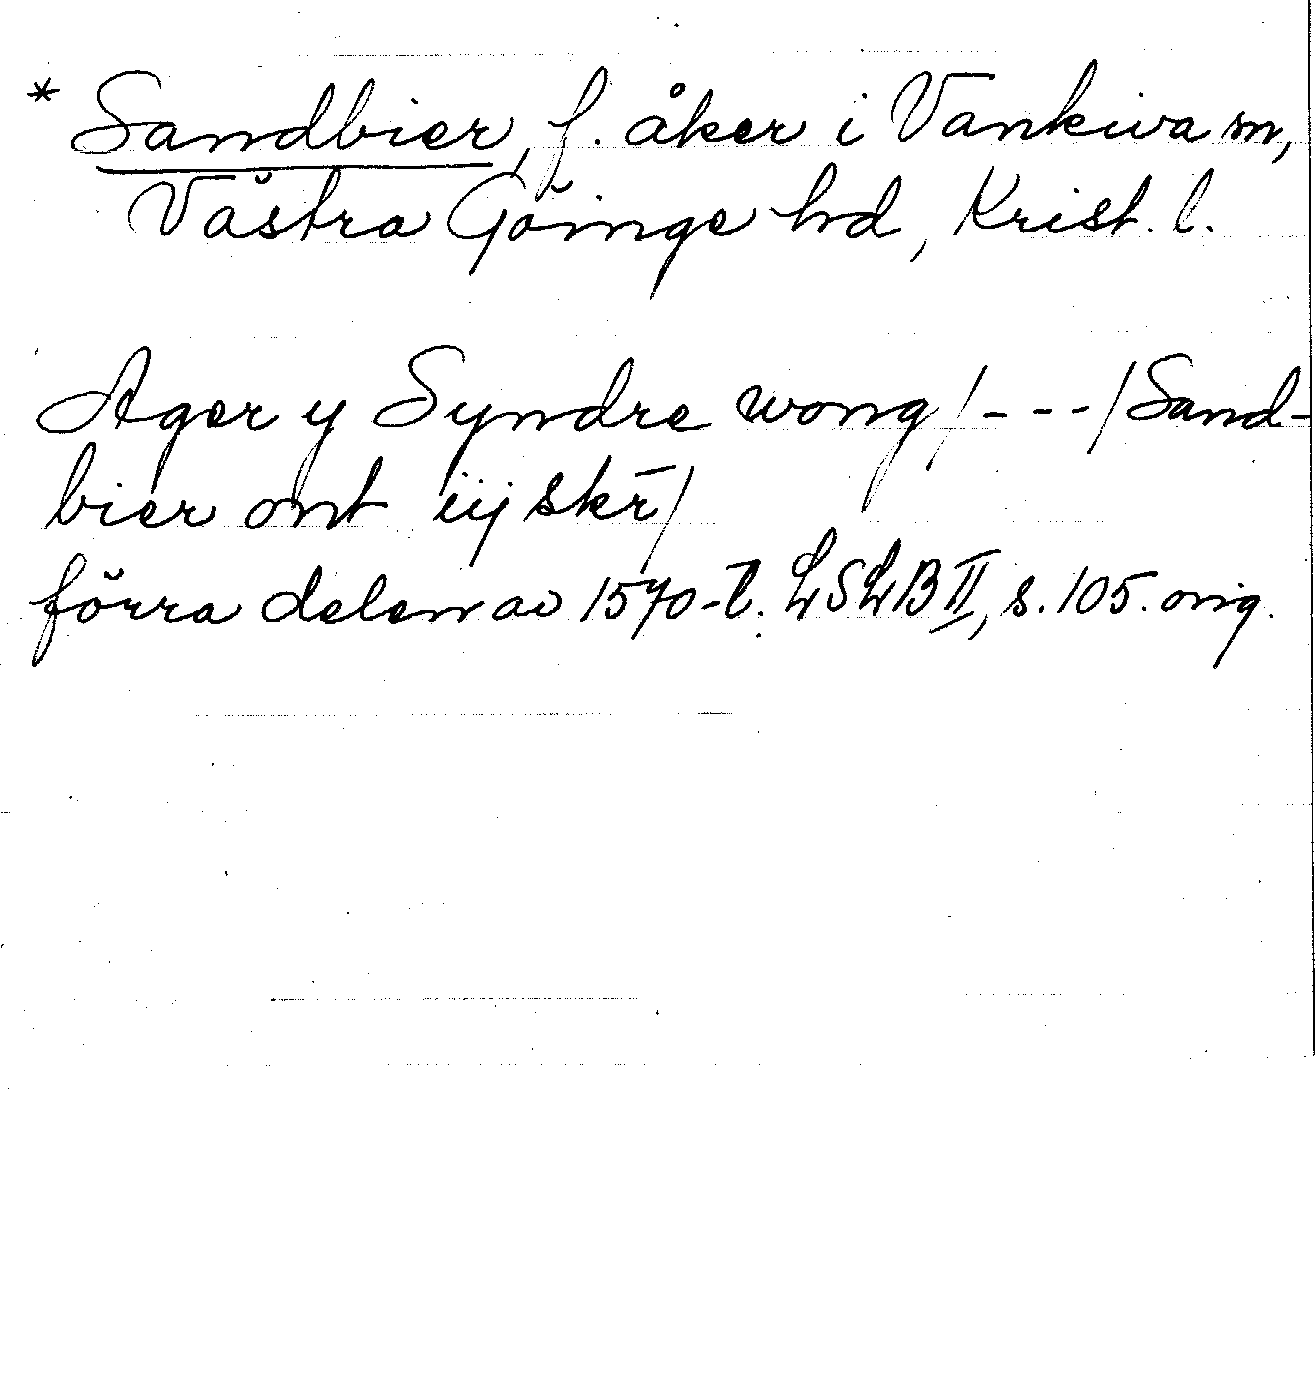 * Sandbier, f. åker i Vankiva sn,
Västra Göinge hd, Krist. l.
Ager y Syndre wong /---/ Sand-
bier ont iij skr̄/
förra delen av 1570-t. LSLB II, s. 105. orig.